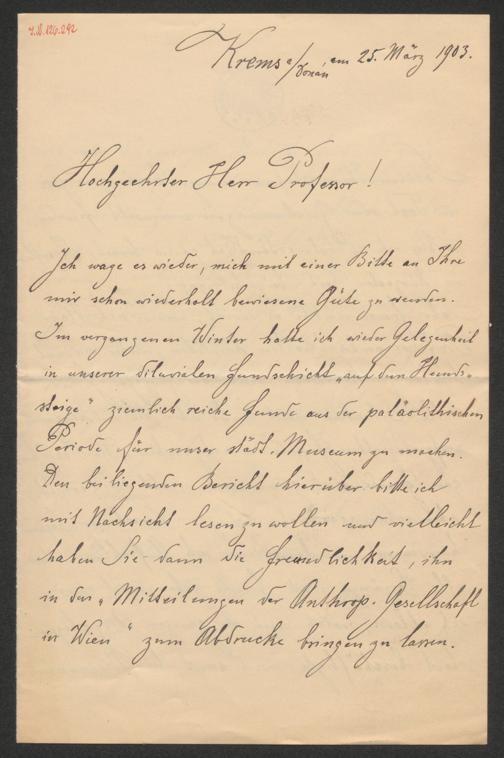 I.N. 126.292
Krems a/Donau am 25. März 1903.
Hochgeehrter Herr Professor!
Ich wage es wieder, mich mit einer Bitte an Ihre
mir schon wiederholt bewiesene Güte zu wenden.
Im vergangenen Winter hatte ich wieder Gelegenheit
in unserer diluvialen Fundschicht „auf dem Hunds-
steige" ziemlich reiche Funde aus der paläolithischen
Periode für unser städt. Museum zu machen.
Den beiliegenden Bericht hierüber bitte ich
mit Nachsicht lesen zu wollen und vielleicht
haben Sie dann die Freundlichkeit, ihn
in den „Mitteilungen der Anthrop. Gesellschaft
in Wien" zum Abdrucke bringen zu lassen.